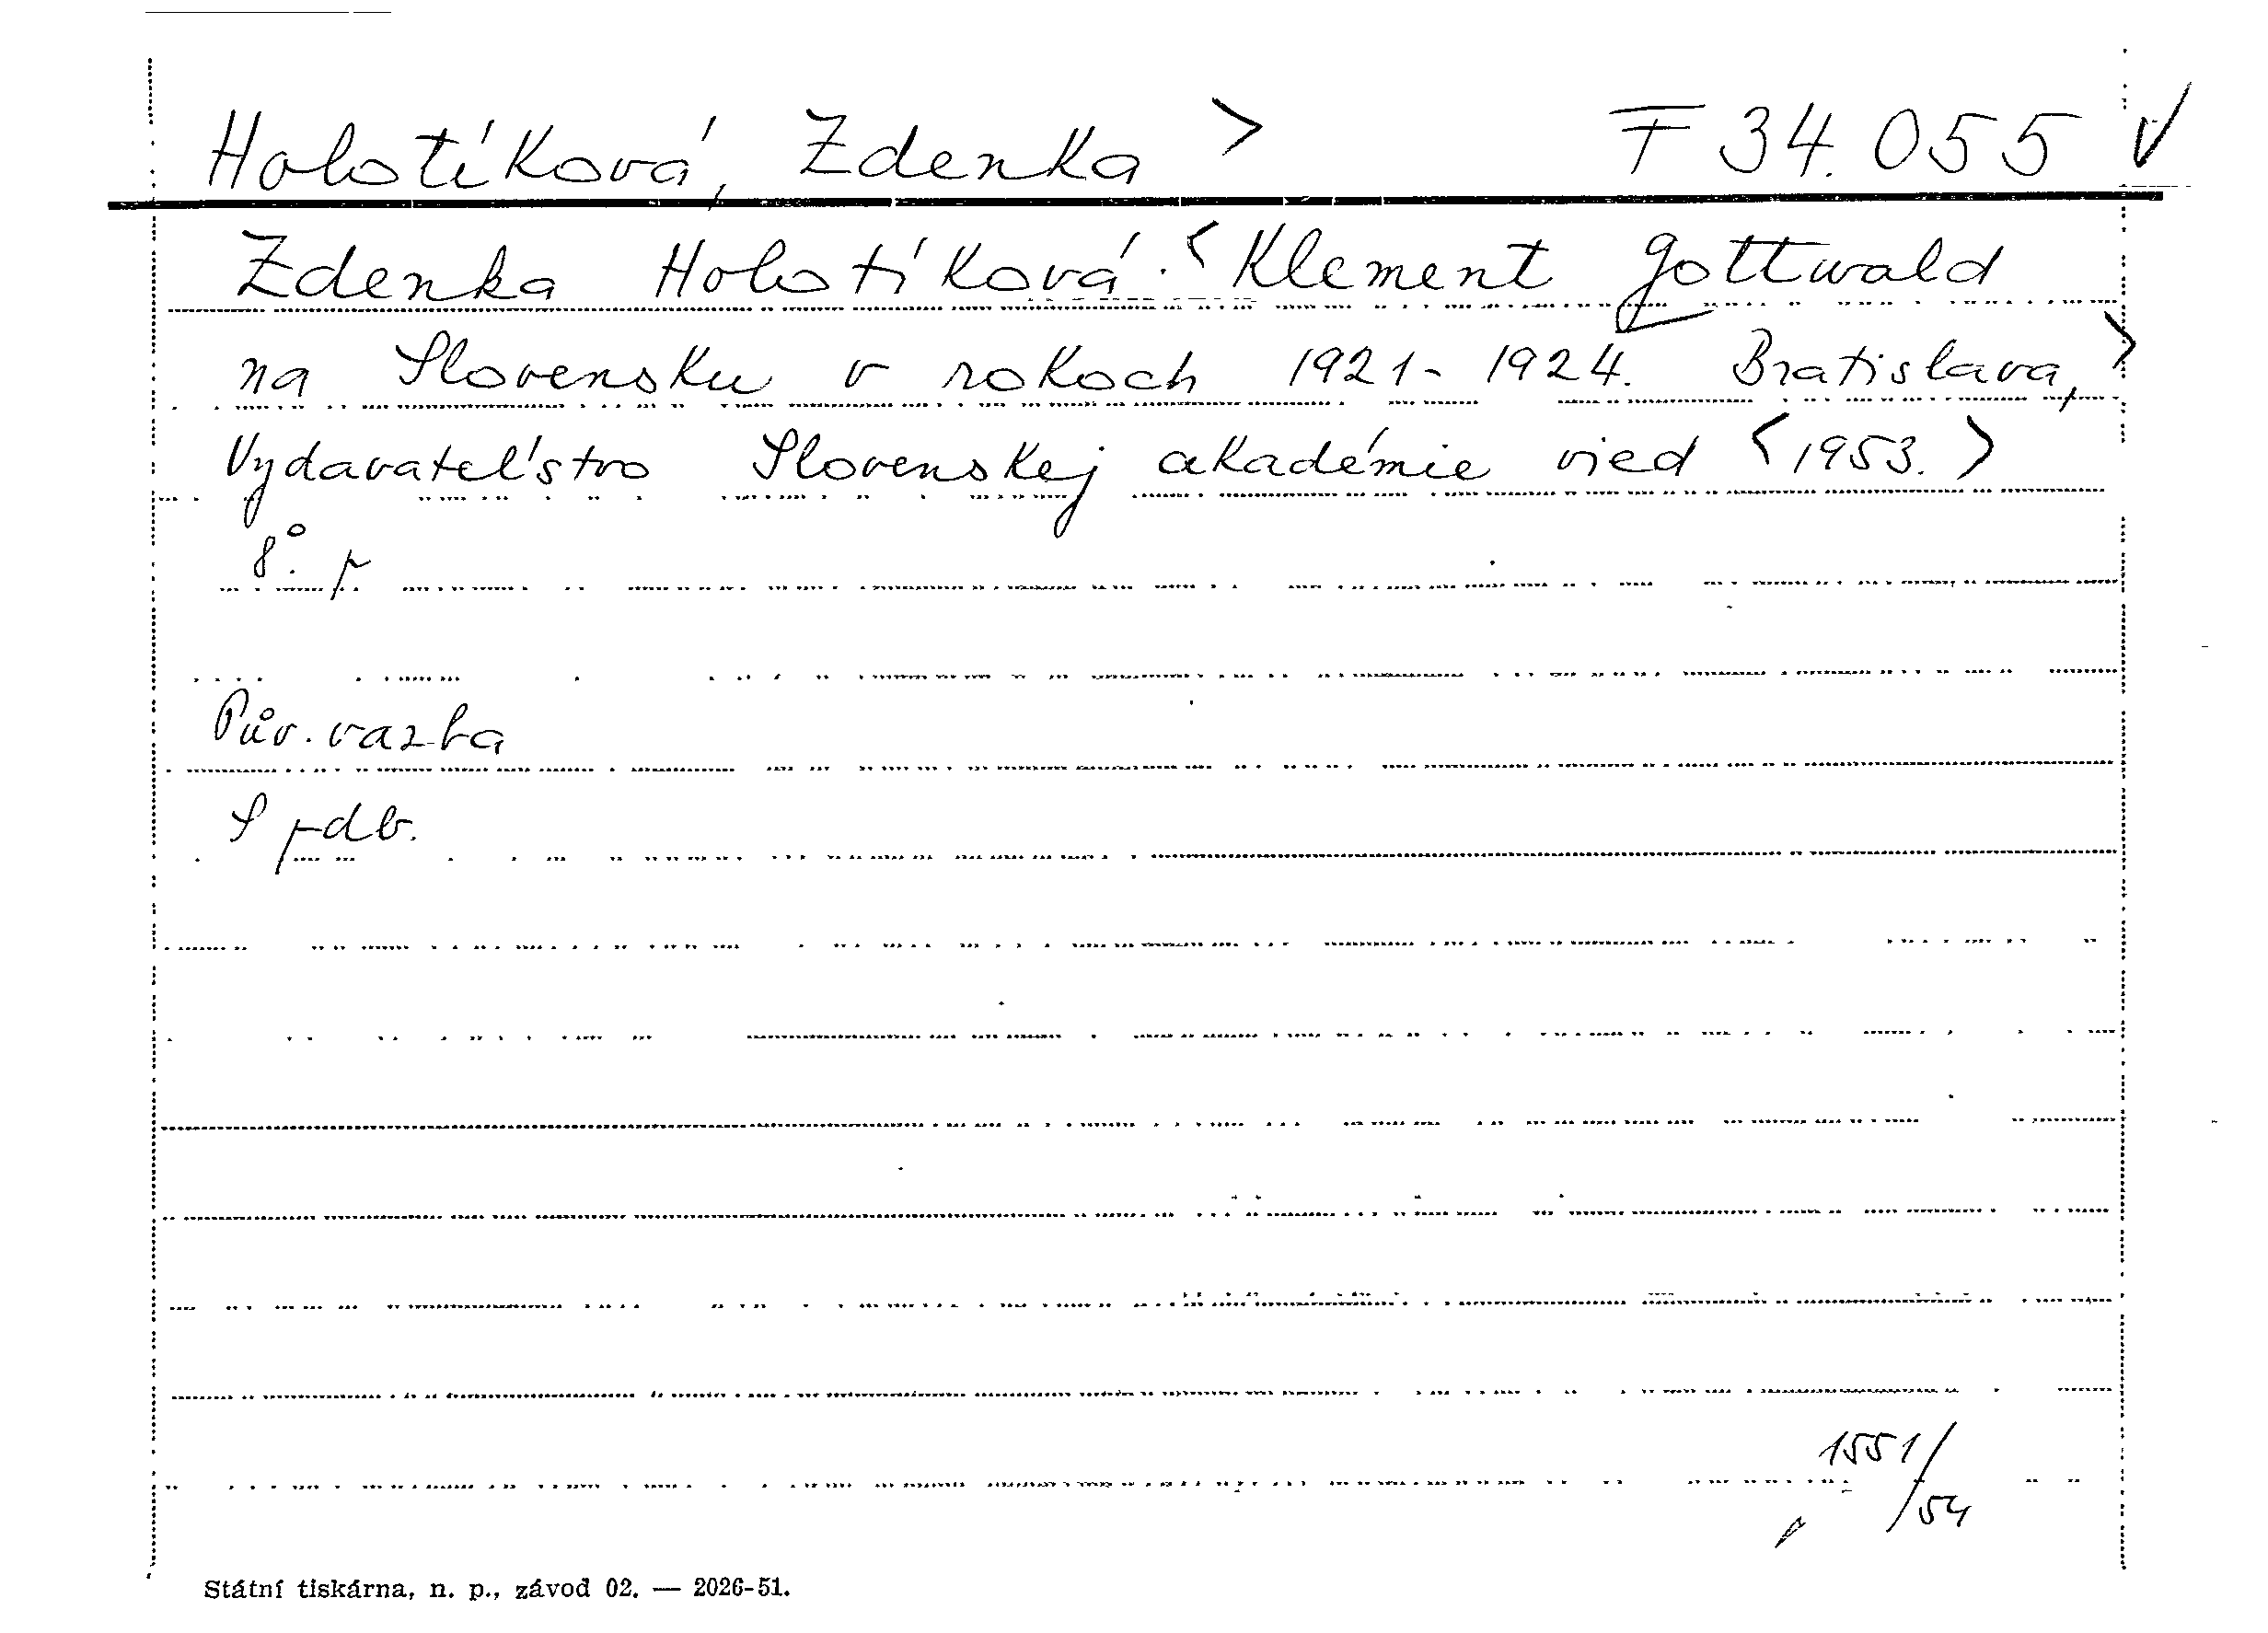 Holotíková, Zdenka > F 34.055 V
Zdenka Holotíková: <Klement Gottwald
na Slovensku v rokoch 1921-1924. Bratislava,>
Vydavateľstvo Slovenskej akadémie vied <1953.>
8°. p
Pův. vazba
S pdb.
1551/54
Státní tiskárna, n. p., závod 02. — 2026-51.